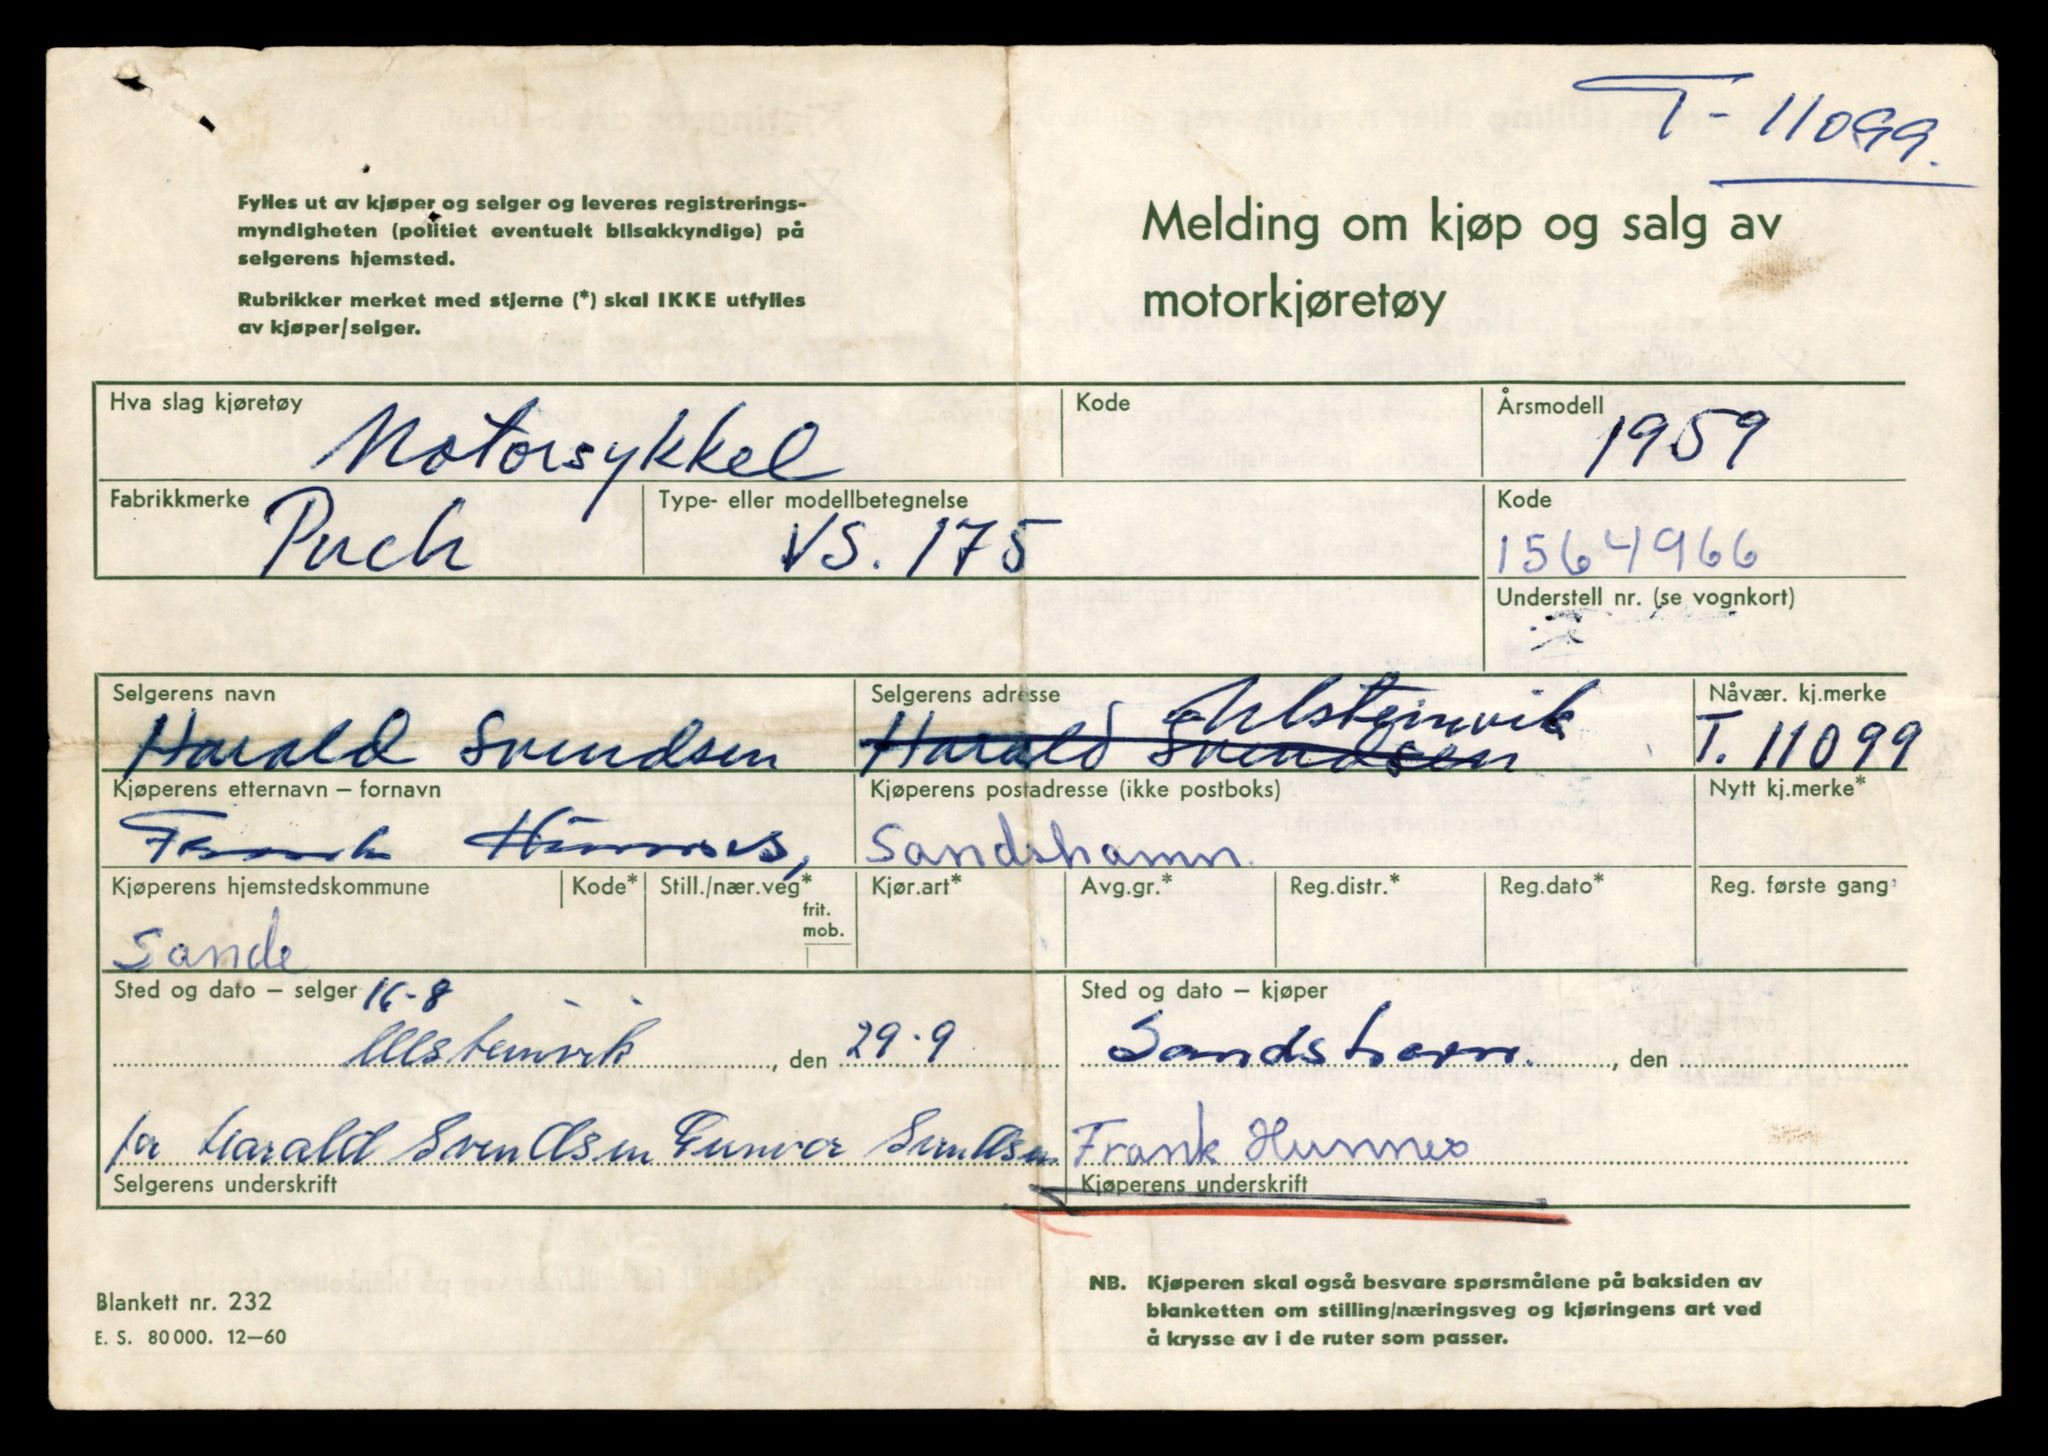 T - 11099.
Fylles ut av kjøper og selger og leveres registrerings-
myndigheten (politiet eventuelt bilsakkyndige) på
selgerens hjemsted.
Rubrikker merket med stjerne (*) skal IKKE utfylles
av kjøper/selger.
Melding om kjøp og salg av
motorkjøretøy
Hva slag kjøretøy
Motorsykkel
Kode
Årsmodell
1959
Fabrikkmerke
Puch
Type- eller modellbetegnelse
VS. 175
Kode
1564966
Understell nr. (se vognkort)
Selgerens navn
Harald Svendsen
Selgerens adresse
Harald Svendsen
Ulsteinvik
Nåvær. kj.merke
T. 11099
Kjøperens etternavn – fornavn
Frank Hunnes,
Kjøperens postadresse (ikke postboks)
Sandshamn
Nytt kj.merke*
Kjøperens hjemstedskommune
Sande
Kode*
Still./nær.veg*
frit.
mob.
Kjør.art*
Avg.gr.*
Reg.distr.*
Reg.dato*
Reg. første gang
Sted og dato – selger 16-8
Ulsteinvik, den 29.9
Sted og dato – kjøper
Sandshavn., den
for Harald Svendsen Gunvor Svendsen
Selgerens underskrift
Frank Hunnes
Kjøperens underskrift
Blankett nr. 232
E. S. 80 000. 12–60
NB. Kjøperen skal også besvare spørsmålene på baksiden av
blanketten om stilling/næringsveg og kjøringens art ved
å krysse av i de ruter som passer.